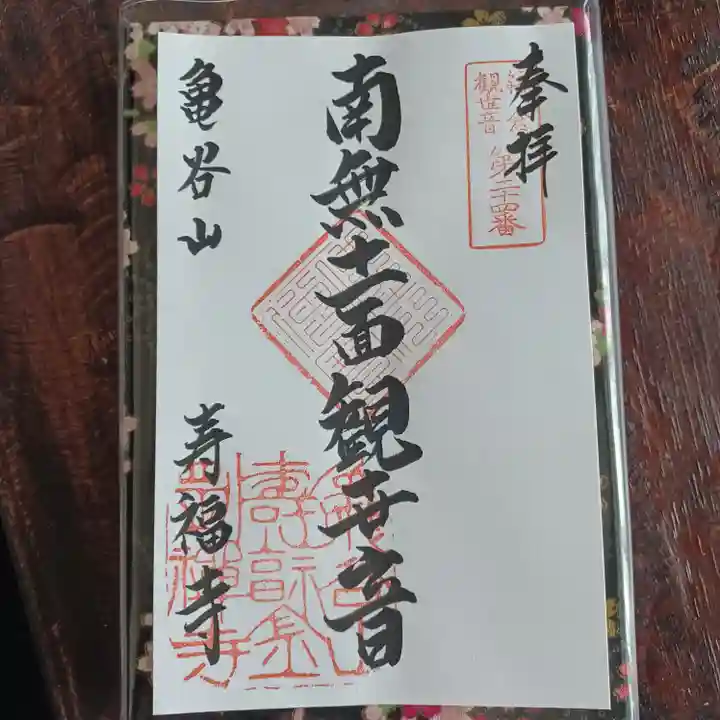 奉拝
鎌倉
観世音
第二十四番
南無十一面観世音
亀谷山
寿福寺